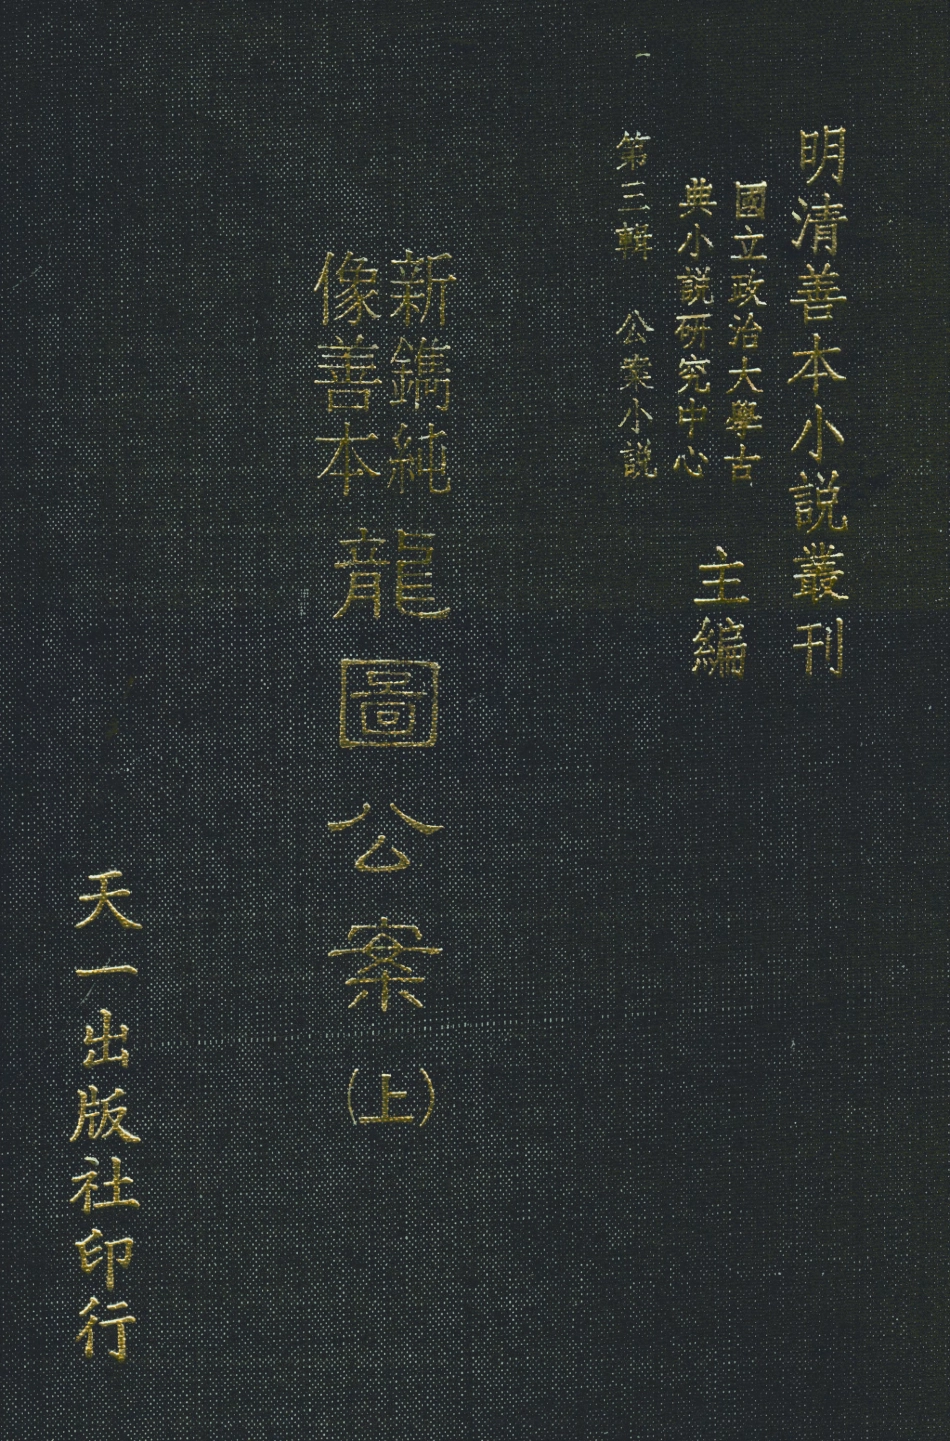 明清善本小説叢刊
國立政治大學古
典小説研究中心
主編
第三輯 公案小説
新鐫純
像善本
龍圖公案(上)
天一出版社印行